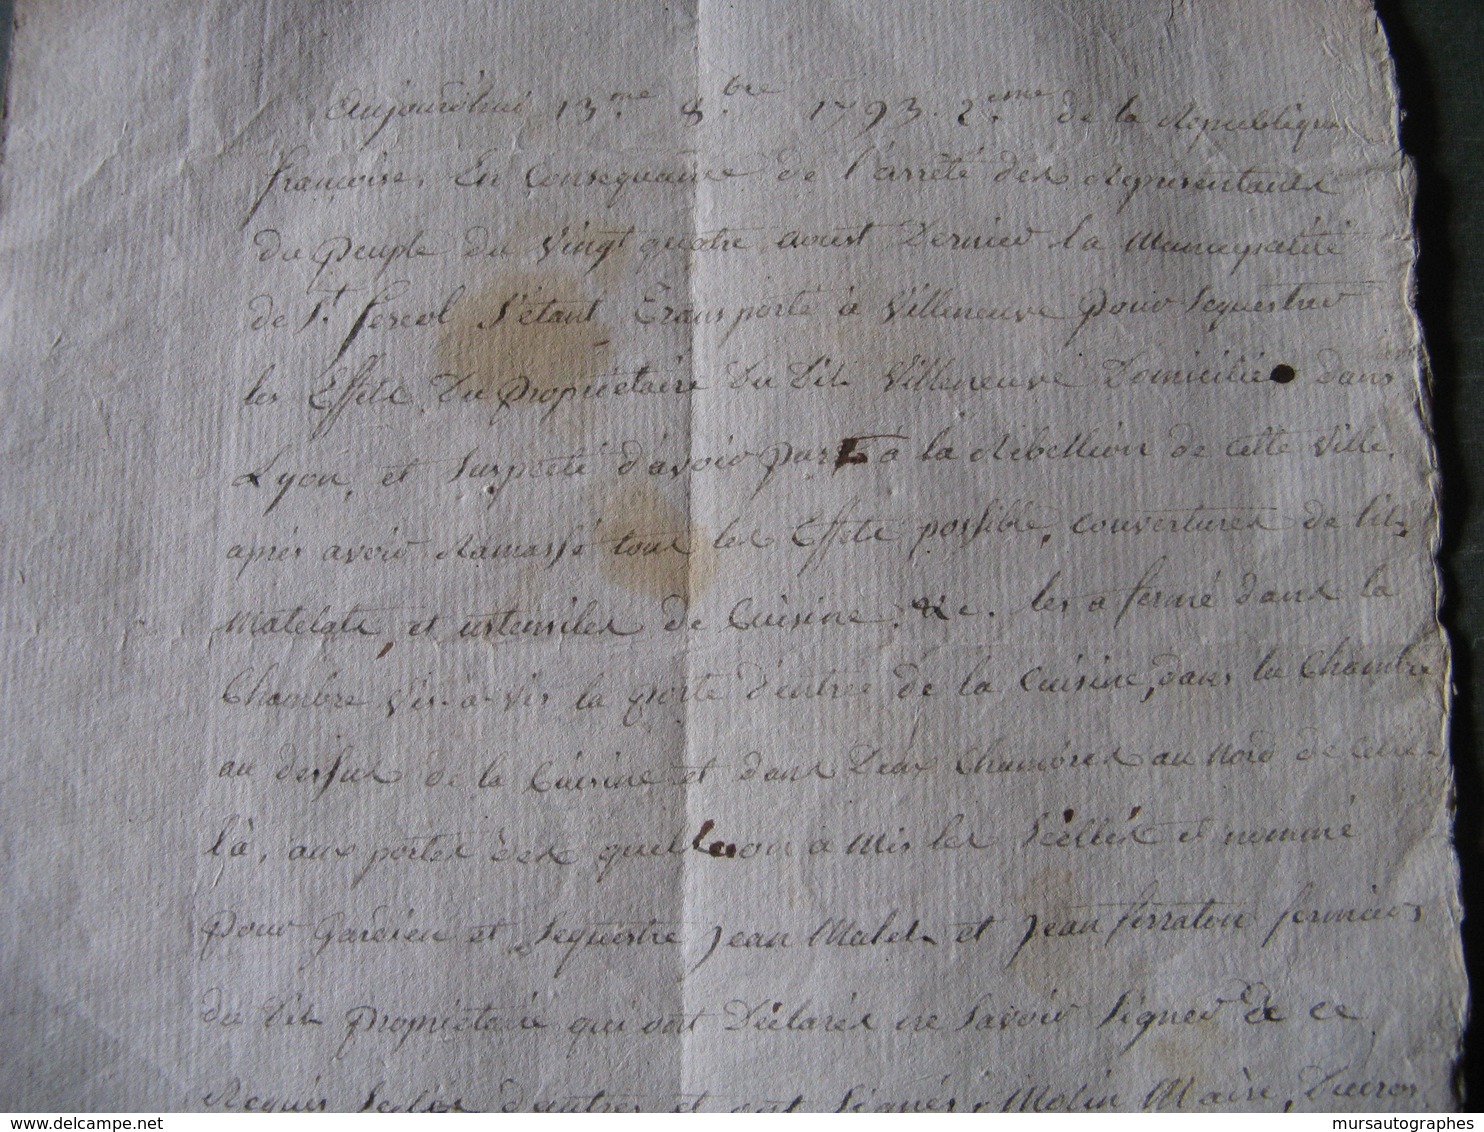 Aujourd'hui 13.me 8.bre 1793. 2.eme de la Republique
françoise, En Consequance de l'arrêté des Representans
du peuple du vingt quatre aoust Dernier la Municipalité
de St. fereol s'étant transporté à Villeneuve pour sequestrer
les Effets Du proprietaire Du Dit Villeneuve Domicilié dans
Lyon, et suspecté d'avoir part à la Rebellion de cette ville,
après avoir Ramassé tous les Effets possible, couvertures de lit,
Matelats, et ustensiles de Cuisine, &c. les a fermé dans la
Chambre vis-à-vis la porte d'entrée de la Cuisine, dans la Chambre
au dessus de la Cuisine et dans Deux Chambres au Nord de celle
là, aux portes des quelles on a mis les scellés et nommé
pour Gardien et sequestre Jean Malet et Jean ferraton fermiers
du Dit proprietaire qui ont Déclarés ne savoir signer de ce
Requis d'autres et ont signés, Molin Maire,
delcampe.net
mursautographes